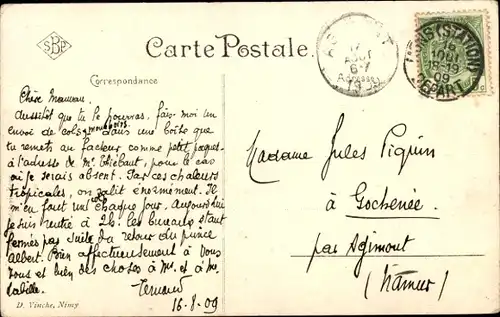 SBP
Carte Postale.
Correspondance
Chère Maman.
Aussitôt que tu le pourras, fais-moi un
envoi de cols, mouchoirs dans une boîte que
tu remets au facteur comme petit paquet
à l'adresse de Mr Thiébaut, pour le cas
où je serais absent. Par ces chaleurs
tropicales, on salit énormément. Il
m'en faut un col chaque jour. Aujourd'hui
je suis rentré à 2h. les bureaux étant
fermés par suite du retour du prince
Albert. Bien affectueusement à Vous
tous et bien des choses à Mr. et à Me
Labille.
Fernand
16-8-09
D. Vinche, Nimy
Madame Jules Piquin
à Gochenée
par Agimont
(Namur)
AGIMONT
17
AOUT
6-7
1909
MONS (STATION)
16
AOUT
18-19
09
DÉPART